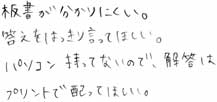 板書が分かりにくい。
答えをはっきり言ってほしい。
パソコン持ってないので、解答は
プリントで配ってほしい。